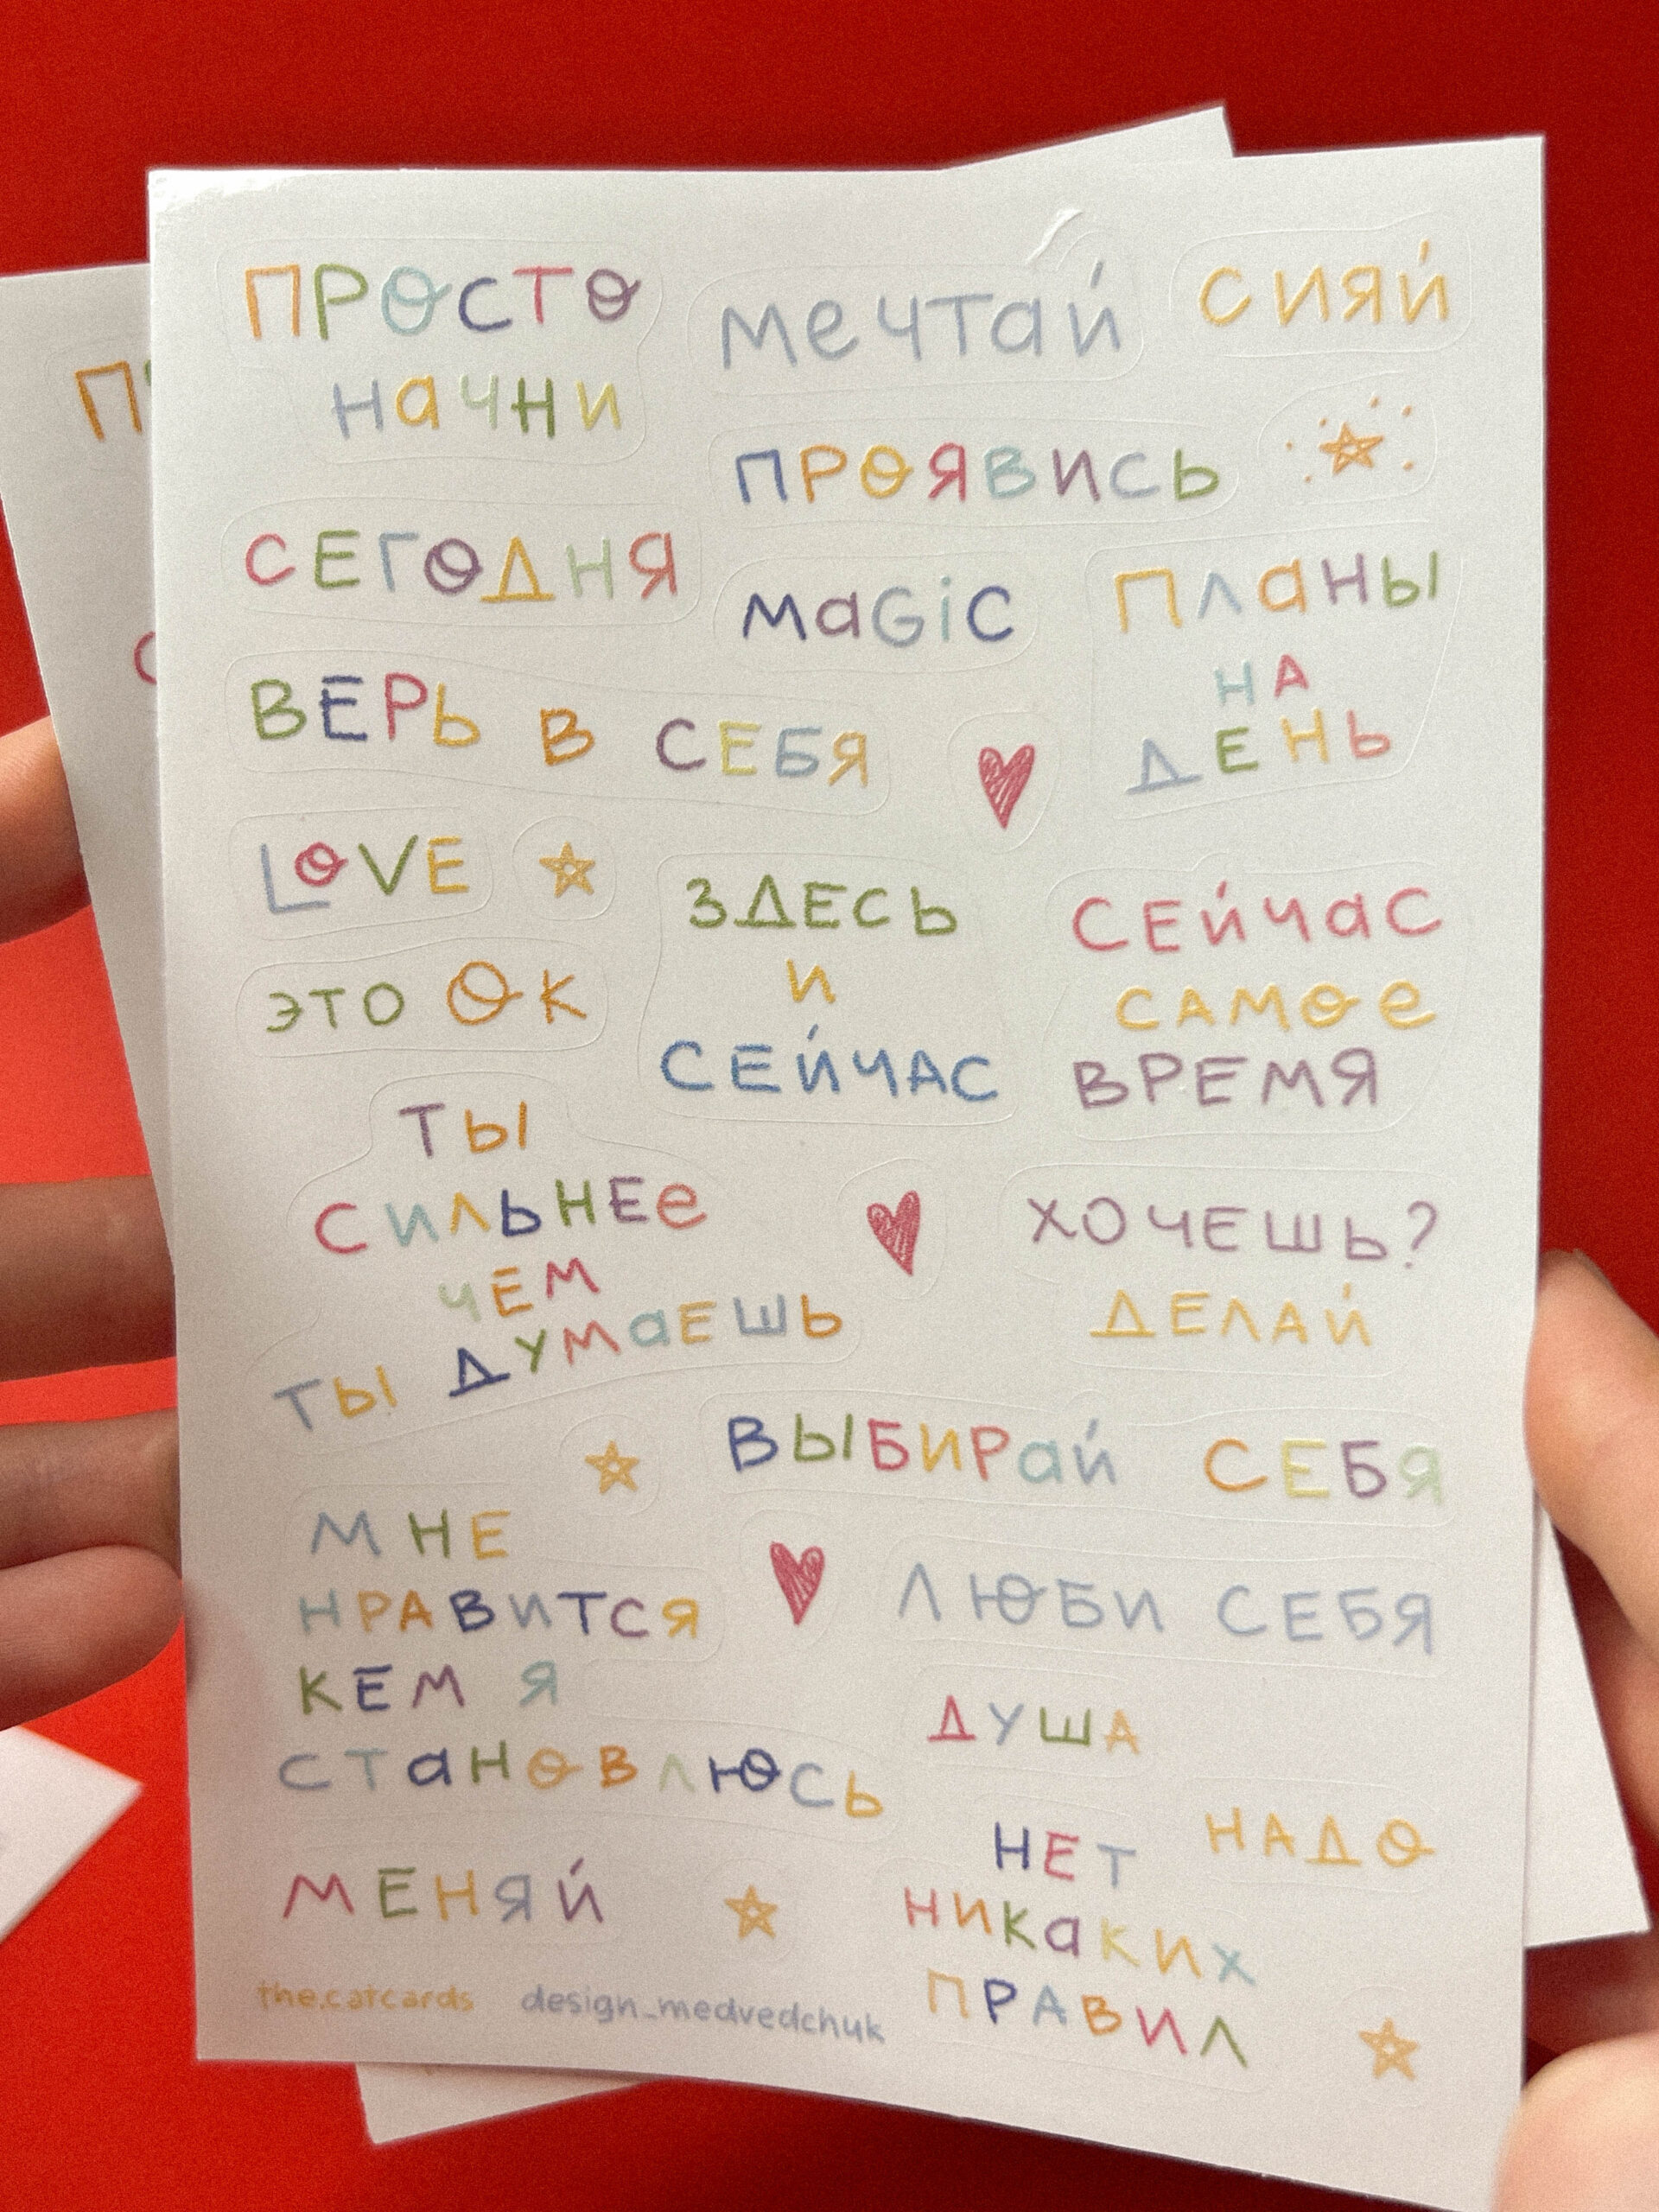 ПРОСТО
НаЧНИ
мечтай
СИЯЙ
ПРОЯВИСЬ
СЕГОДНЯ
маGiC
ПЛаНЫ
НА
ДЕНЬ
ВЕРЬ В СЕБЯ
LOVE
ЗДЕСЬ
И
СЕЙЧАС
СЕЙЧаС
САМОе
ВРЕМЯ
ЭТО ОК
ТЫ
СИЛЬНЕе
ЧЕМ
ТЫ ДУМаЕШЬ
ХОЧЕШЬ?
ДЕЛАЙ
ВЫБИРаЙ СЕБЯ
МНЕ
НРАВИТСЯ
КЕМ Я
СТаНОВЛЮСЬ
ЛЮБИ СЕБЯ
ДУША
НАДО
НЕТ
НИКаКИХ
ПРАВИЛ
МЕНЯЙ
the.catcards design_medvedchuk
П
С